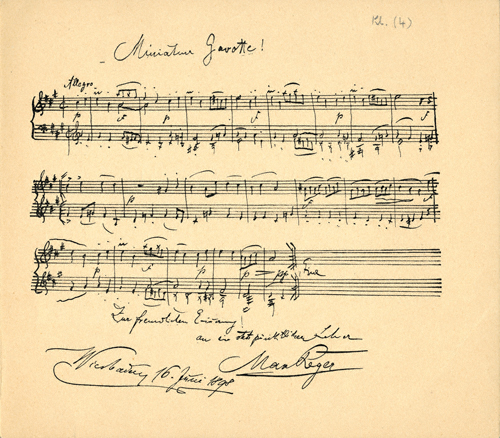 Kl. (4)
Miniature Gavotte!
Allegro
p f p f p f
p f
p f p p pp Fine
Zur freundlichen Erinnerung!
an
Wiesbaden, 16. Juni 1898 Max Reger